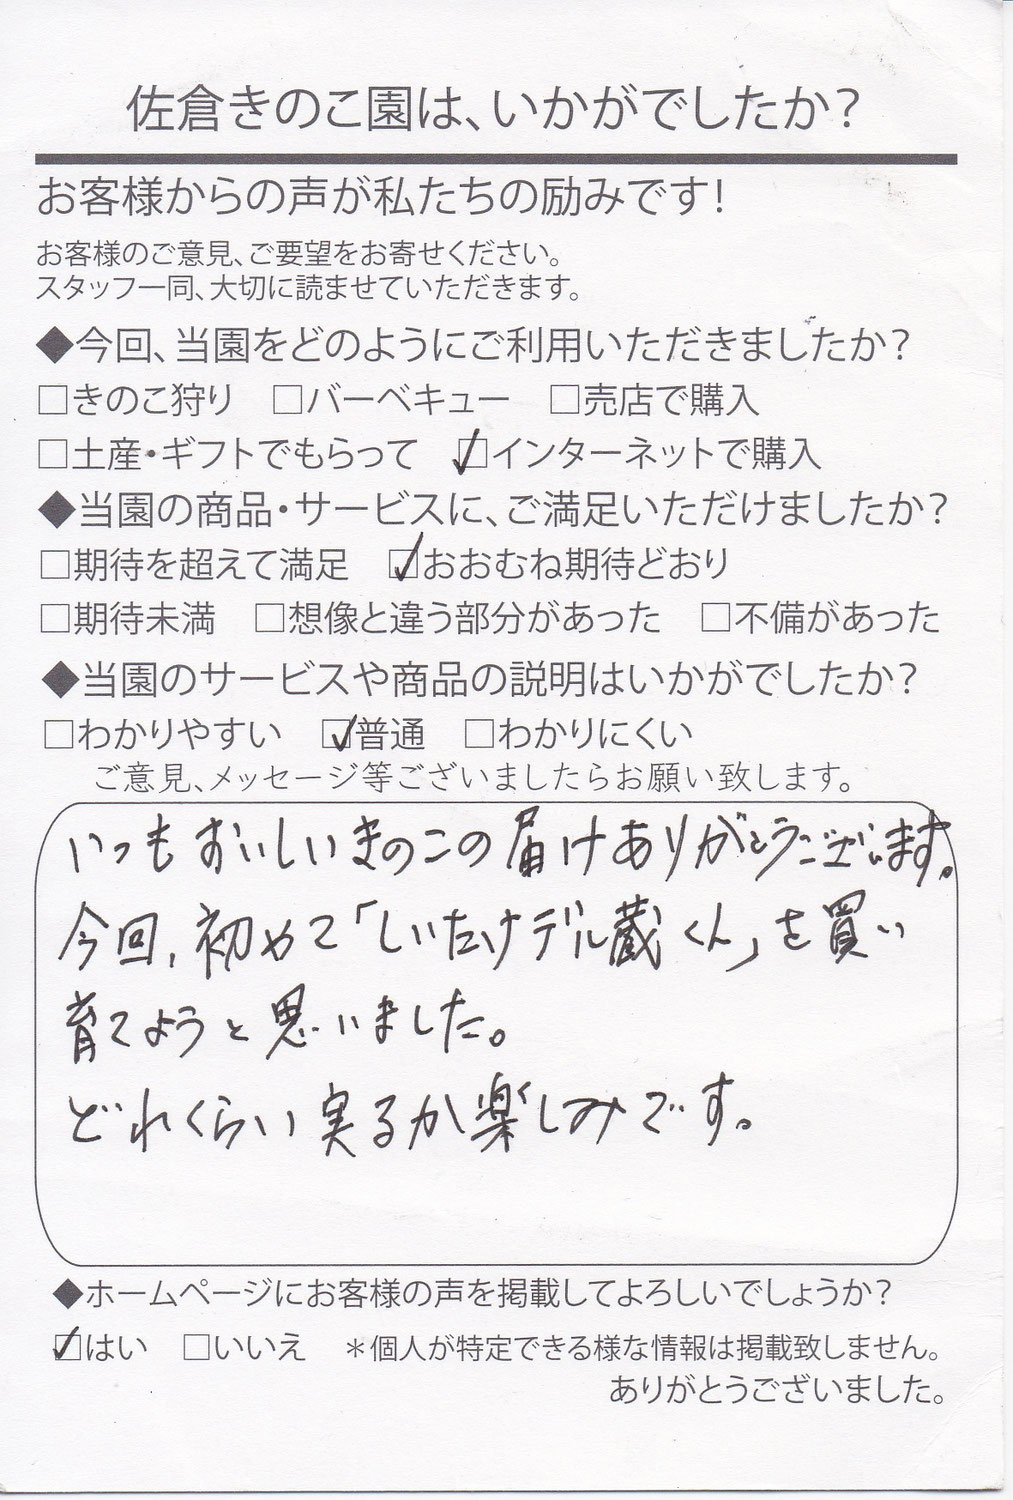 佐倉きのこ園は、いかがでしたか?
お客様からの声が私たちの励みです!
お客様のご意見、ご要望をお寄せください。
スタッフ一同、大切に読ませていただきます。
◆今回、当園をどのようにご利用いただきましたか?
□きのこ狩り □バーベキュー □売店で購入
□土産・ギフトでもらって ☑インターネットで購入
◆当園の商品・サービスに、ご満足いただけましたか?
□期待を超えて満足 ☑おおむね期待どおり
□期待未満 □想像と違う部分があった □不備があった
◆当園のサービスや商品の説明はいかがでしたか?
□わかりやすい ☑普通 □わかりにくい
ご意見、メッセージ等ございましたらお願い致します。
いつもおいしいきのこの届けありがとうございます。
今回,初めて「しいたけデル蔵くん」を買い
育てようと思いました。
どれくらい実るか楽しみです。
◆ホームページにお客様の声を掲載してよろしいでしょうか?
☑はい □いいえ ＊個人が特定できる様な情報は掲載致しません。
ありがとうございました。